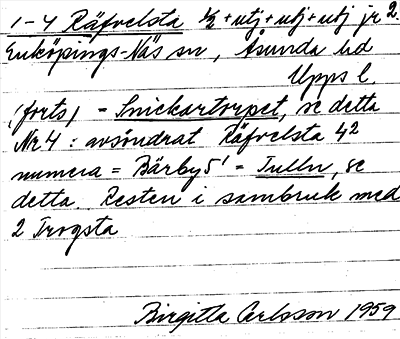 1-4 Räfvelsta ½ + utj + utj + utj jr 2.
Enköpings-Näs sn, Åsunda hd
Upps l.
(forts) - Snickartorpet, se detta
Nr 4 : avsöndrat Räfvelsta 4²
numera = Bärby 5¹ = Tulln, se
detta. Resten i sambruk med
2 Trogsta
Birgitta Carlsson 1959